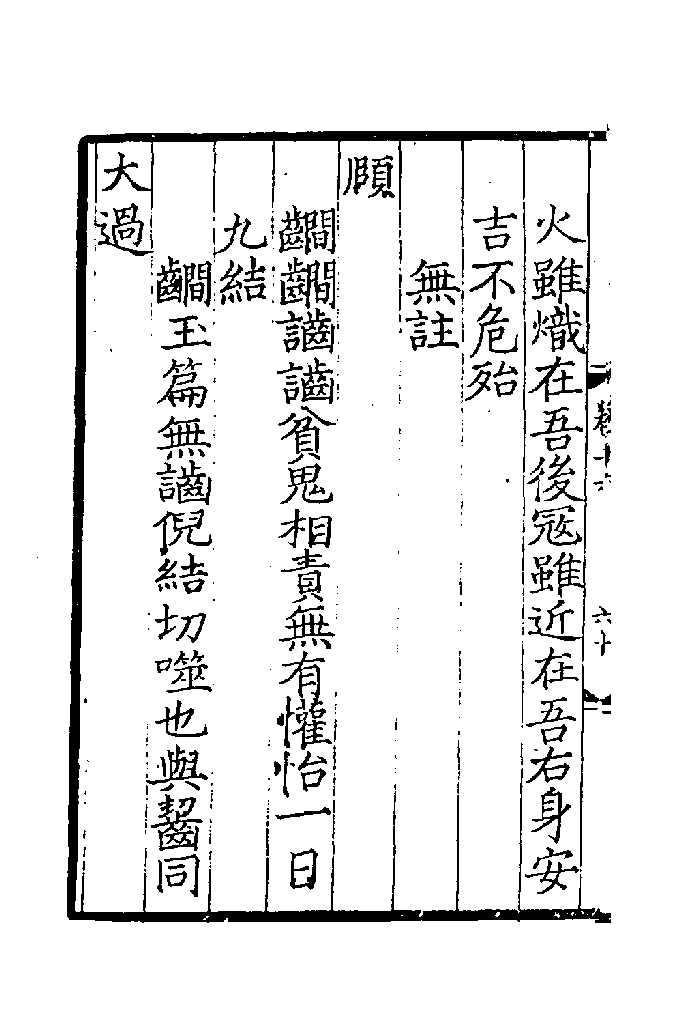 卷十六
六十
火雖熾在吾後冦雖近在吾右身安
吉不危殆
無註
頤
貧鬼相責無有懽怡一日
九結
玉篇無倪結切噬也與齧同
大過